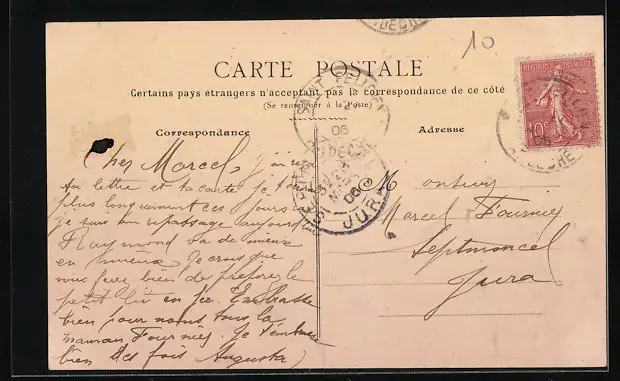 10
CARTE POSTALE
Certains pays étrangers n'acceptent pas la correspondance de ce côté
(Se renseigner à la Poste)
Correspondance
Adresse
Cher Marcel, j'ai reçu
ta lettre et ta carte je t'écrirai
plus longuement ces jours
je suis en repassage aujourd
Raymond va de mieux
en mieux je crois que
vous ferez bien de préparer le
petit lit en fer. Embrasse
bien pour nous tous la
maman Fournier. Je t'embrasse
bien des fois Augusta
Monsieur
Marcel Fournier
Septmoncel
Jura
RÉPUBLIQUE FRANÇAISE
10
ARDECHE
06
SEPTMONCEL
06
JURA
ARDECHE